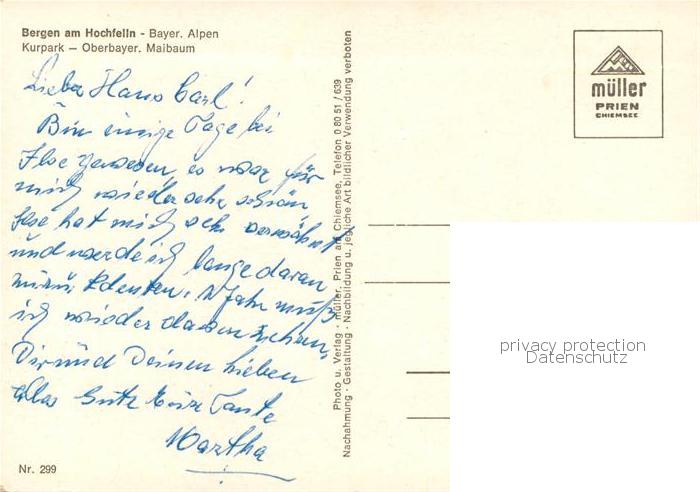 Bergen am Hochfelln - Bayer. Alpen
Kurpark — Oberbayer. Maibaum
Lieber Hans Carl!
Bin einige Tage bei
Ilse gewesen, es war für
mich wieder sehr schön,
Ilse hat mich sehr verwöhnt
und werde ich lange daran
denken. Jahr muß
ich wieder davon zehren.
Dir und Deinen Lieben
alles Gute Eure Tante
Martha
Nr. 299
Photo u. Verlag · müller, Prien am Chiemsee, Telefon 0 80 51 / 639
Nachahmung · Gestaltung · Nachbildung u. jegliche Art bildlicher Verwendung verboten
müller
PRIEN
CHIEMSEE
privacy protection
Datenschutz